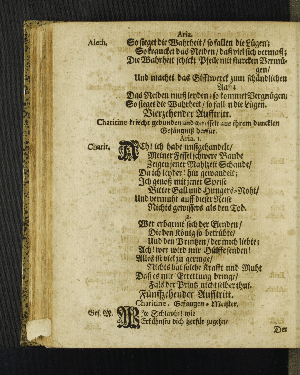 Aria.
Aleth. So sieget die Wahrheit / so fallen die Lügen;
So kräncket das Neiden / daß viel sich vermaß;
Die Wahrheit schickt Pfeile mit starcken Vergnü-
gen /
Und machet das zum schändlichen
Das Neiden muß leyden / so kommet Vergnügen,
So sieget die Wahrheit / so fall'n die Lügen.
Vierzehender Aufftritt.
Charicine kriecht gebunden und aus ihrem duncklen
Gefängniß hervor.
Aria. 1.
Charit. ACh! ich habe mißgehandelt /
Meiner Fessel schwere Bande
Zeigen jener Mahlzeit Schande /
Da ich leyder! hin gewandelt;
Ich genoß mit jener Speise
Bitter Gall und Hungers-Noht /
Und vermuht auff dieser Reise
Nichts gewissers als den Tod.
2.
Wer erbarmt sich der Elenden /
Die den König so betrübte /
Und den Printzen / der mich liebte;
Ach! wer wird mir Hülffe senden!
Alles ist viel zu geringe /
Nichts hat solche Krafft und Muht
Daß es mir Errettung bringe /
Fals der Printz nicht selber thut.
Fünffzehender Aufftritt.
Charicine. Gefangen-Meister.
Gef. M. Sclavin! wie
Erkühnstu dich herfür zugehen /
Der